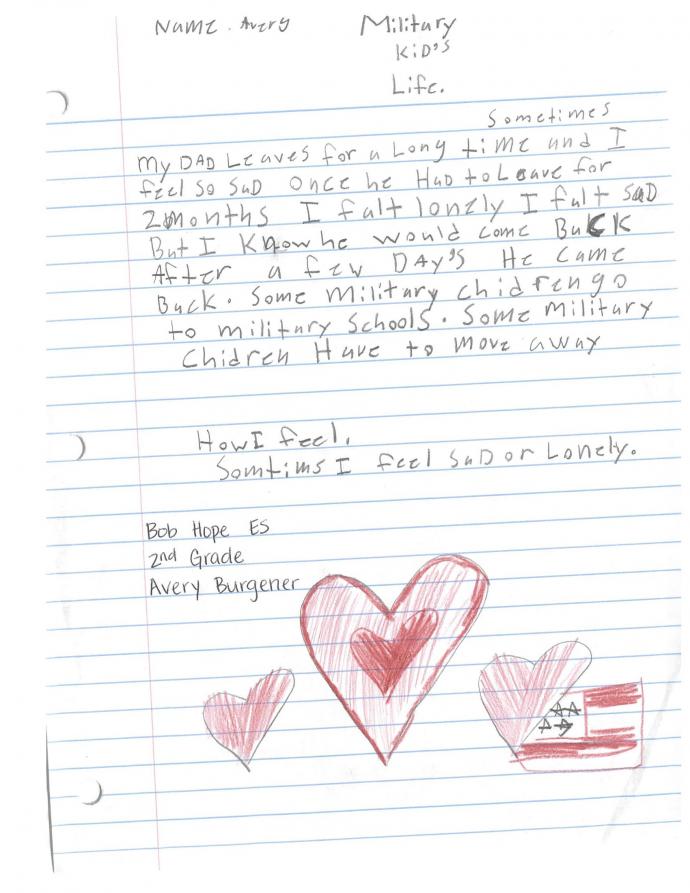 Name. Avery
Military
KiD's
Life.
Sometimes
My DAD Leaves for a Long time and I
feel so saD once he HaD to Leave for
2months I falt lonely I falt saD
But I Know he would come BacK
After a few DAY's He came
Back. Some military chidren go
to military Schools. Some military
Chidren Have to move away
How I feel.
Somtims I feel saD or Lonely.
Bob Hope ES
2nd Grade
Avery Burgener